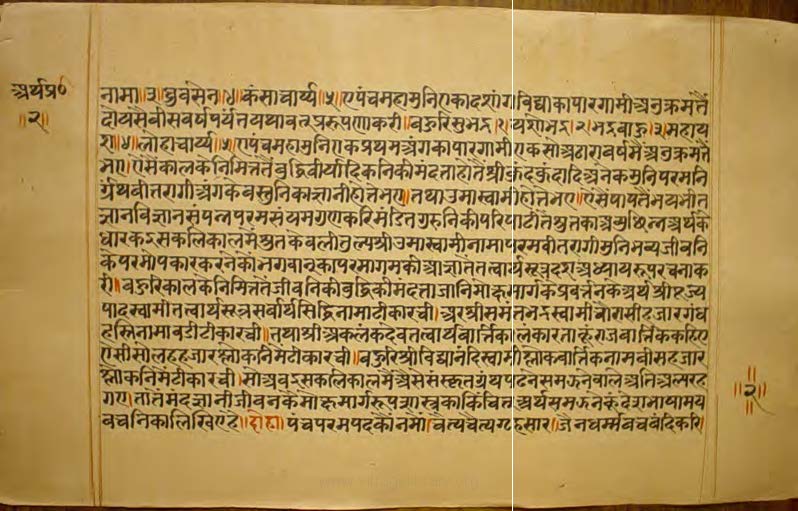 अर्थप्र०
॥२॥
नामा॥३॥ध्रुवसेन॥४॥कंसाचार्य्य॥५॥एपंचमहामुनिएकादशांगविद्याकापारगामीअनुक्रमतैं
दोयसैवीसवर्षपर्यंतयथावत्प्ररूपणाकरी॥बहुरिसुभद्र।१।यशोभद्र।२।भद्रबाहु।३।महाय
श॥४॥लोहाचार्य्य॥५॥एपंचमहामुनिएकप्रथमअंगकापारगामीएकसोअठारावर्षमैंअनुक्रमतैं
भए।ऐसैंकालकेनिमित्ततैंबुद्धिवीर्यादिकनिकीमंदताहोतैंश्रीकुंदकुंदादिअनेकमुनिपरमनि
र्ग्रंथवीतरागीअंगकेवस्तुनिकाज्ञानीहोतेभए॥तथाउमास्वामीहोतेभए।ऐसेंपापतैंभयभीत
ज्ञानविज्ञानसंपन्नपरमसंयमगुणकरिमंडितगुरुनिकीपरिपाटीतैंश्रुतकाअव्युछिन्नअर्थके
धारकइसकलिकालमैंश्रुतकेवलीतुल्यश्रीउमास्वामीनामापरमवीतरागीमुनिभव्यजीवनि
केपरमोपकारकरनेकोंभगवान्कापरमागमकीआज्ञातैंतत्वार्थसूत्रदशअध्यायरूपरचनाक
री॥बहुरिकालकेनिमित्ततैंजीवनिकीबुद्धिकीमंदताजानिमोक्षमार्गकेप्रवर्त्तनकेअर्थश्रीपूज्य
पादस्वामीतत्वार्थसूत्रसर्वार्थसिद्धिनामाटीकारची॥अरश्रीसमंतभद्रस्वामीचौरासीहजारगंध
हस्तिनामाबडीटीकारची॥तथाश्रीअकलंकदेवतत्वार्थवार्त्तिकालंकारताकूंराजवार्त्तिककहिए
ऐसीसोलहहजारश्लोकनिमैंटीकारची॥बहुरिश्रीविद्यानंदिस्वामीश्लोकवार्त्तिकनामवीसहजार
श्लोकनिमैंटीकारची।सोअबइसकलिकालमैंऐसेसंस्कृतग्रंथपढनेसमझनेवालेअतिअल्परह
गए।तातैंमंदज्ञानीजीवनकेमोक्षमार्गरूपशास्त्रकाकिंचित्अर्थसमझनेकूंदेशभाषामय
वचनिकालिखिएहै॥दोहा॥पंचपरमपदकोंनमों।चैत्यचैत्यगृहसार।जैनधर्म्मवचवंदिकरि।
॥२॥